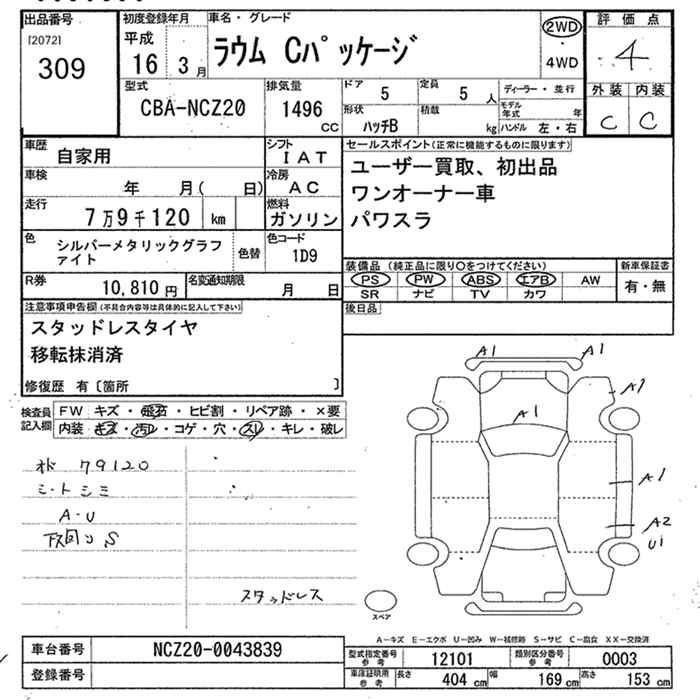 出品番号
[2072]
309
初度登録年月
平成
16 3 月
車名・グレード
ラウム Cパッケージ
2WD
・
4WD
評価点
4
外装 内装
C C
型式
CBA-NCZ20
排気量
1496
CC
ドア
5
定員
5 人
形状
ハッチB
積載
kg
ディーラー・並行
モデル年式 年
ハンドル 左・右
車歴
自家用
シフト
IAT
車検
年 月( 日)
冷房
AC
走行
7万9千120 km
燃料
ガソリン
色
シルバーメタリックグラファイト
色替
色コード
1D9
R券
10,810 円
名変通知期限
月 日
セールスポイント(正常に機能するものに限ります)
ユーザー買取、初出品
ワンオーナー車
パワスラ
装備品 (純正品に限り○をつけてください)
PS PW ABS エアB AW
SR ナビ TV カワ
新車保証書
有・無
後日品
注意事項申告欄(不具合内容等は具体的に記入して下さい)
スタッドレスタイヤ
移転抹消済
修復歴 有〔箇所 〕
検査員記入欄
FW キズ・飛石・ヒビ割・リペア跡・×要
内装 キズ・汚れ・コゲ・穴・スリ・キレ・破レ
79120
シートシミ
A・U
S
スタッドレス
A1 A1
A1
A1
A1
A2
U1
スペア
A-キズ E-エクボ U-凹み W-補修跡 S-サビ C-腐食 XX-交換済
車台番号
NCZ20-0043839
登録番号
型式指定番号
参考
12101
類別区分番号
参考
0003
車庫証明用
参考
長さ
404 cm
幅
169 cm
高さ
153 cm